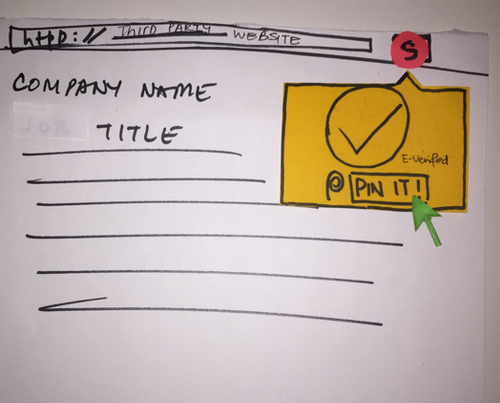 http:// THIRD PARTY WEBSITE
S
COMPANY NAME
JOB TITLE
E-Verified
P PIN IT!